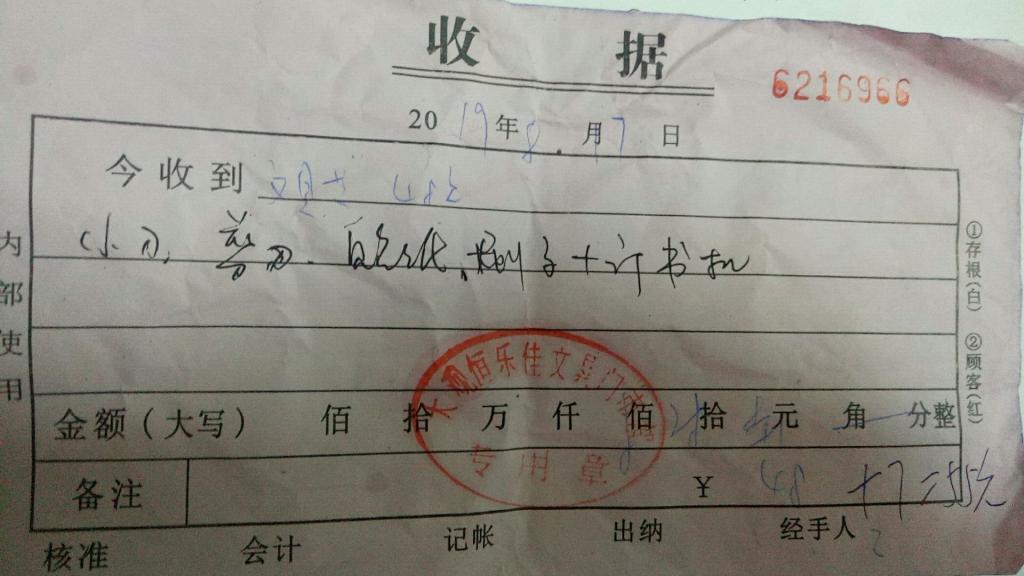 收 据
6216966
2019年8.月7日
今收到 文具 48元
(小刀、
订书机
金额(大写) 佰 拾 万 仟 佰 拾 元 角 分整
恒乐佳文具门市部
专用章
备注 ¥ 48 +7=55元
核准 会计 记帐 出纳 经手人
内部使用
①存根(白) ②顾客(红)